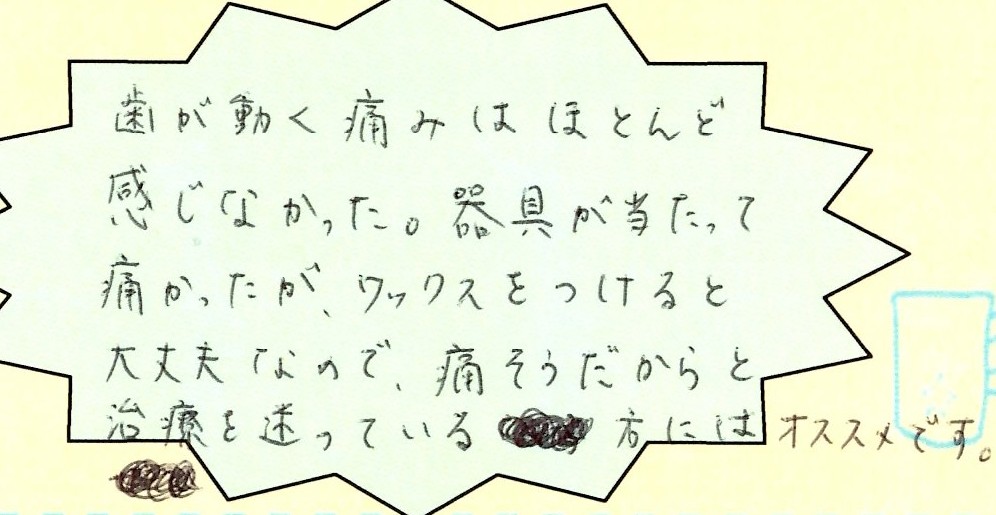 歯が動く痛みはほとんど
感じなかった。器具が当たって
痛かったが、ワックスをつけると
大丈夫なので、痛そうだからと
治療を迷っている方にはオススメです。